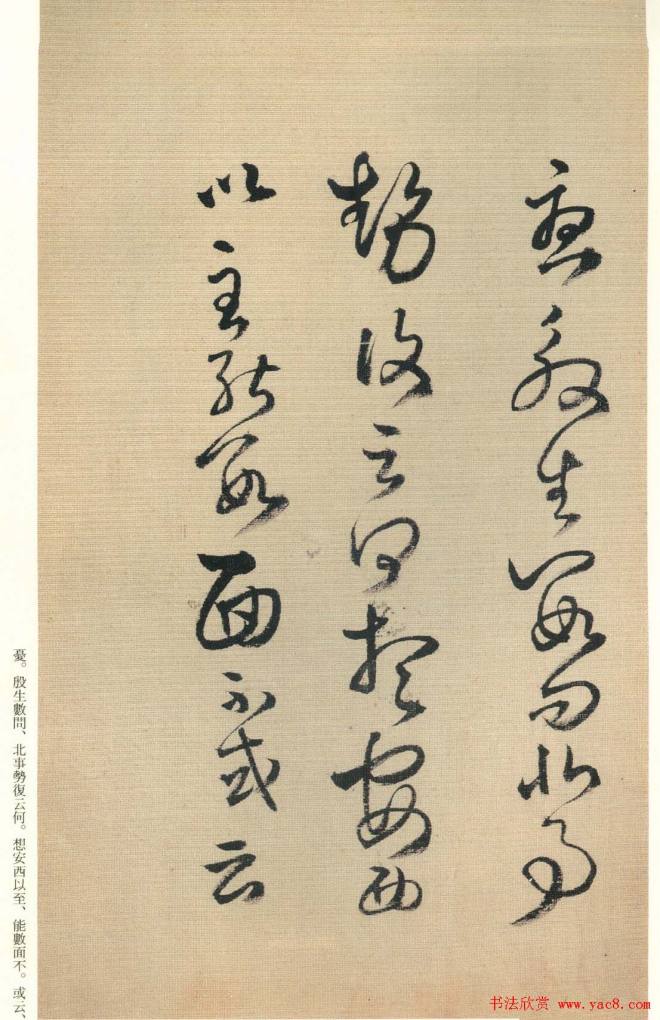 憂殷生數問北事
勢復云何想安西
以至能數面不或云
憂。殷生數問、北事勢復云何。想安西以至、能數面不。或云、
书法欣赏 www.yac8.com